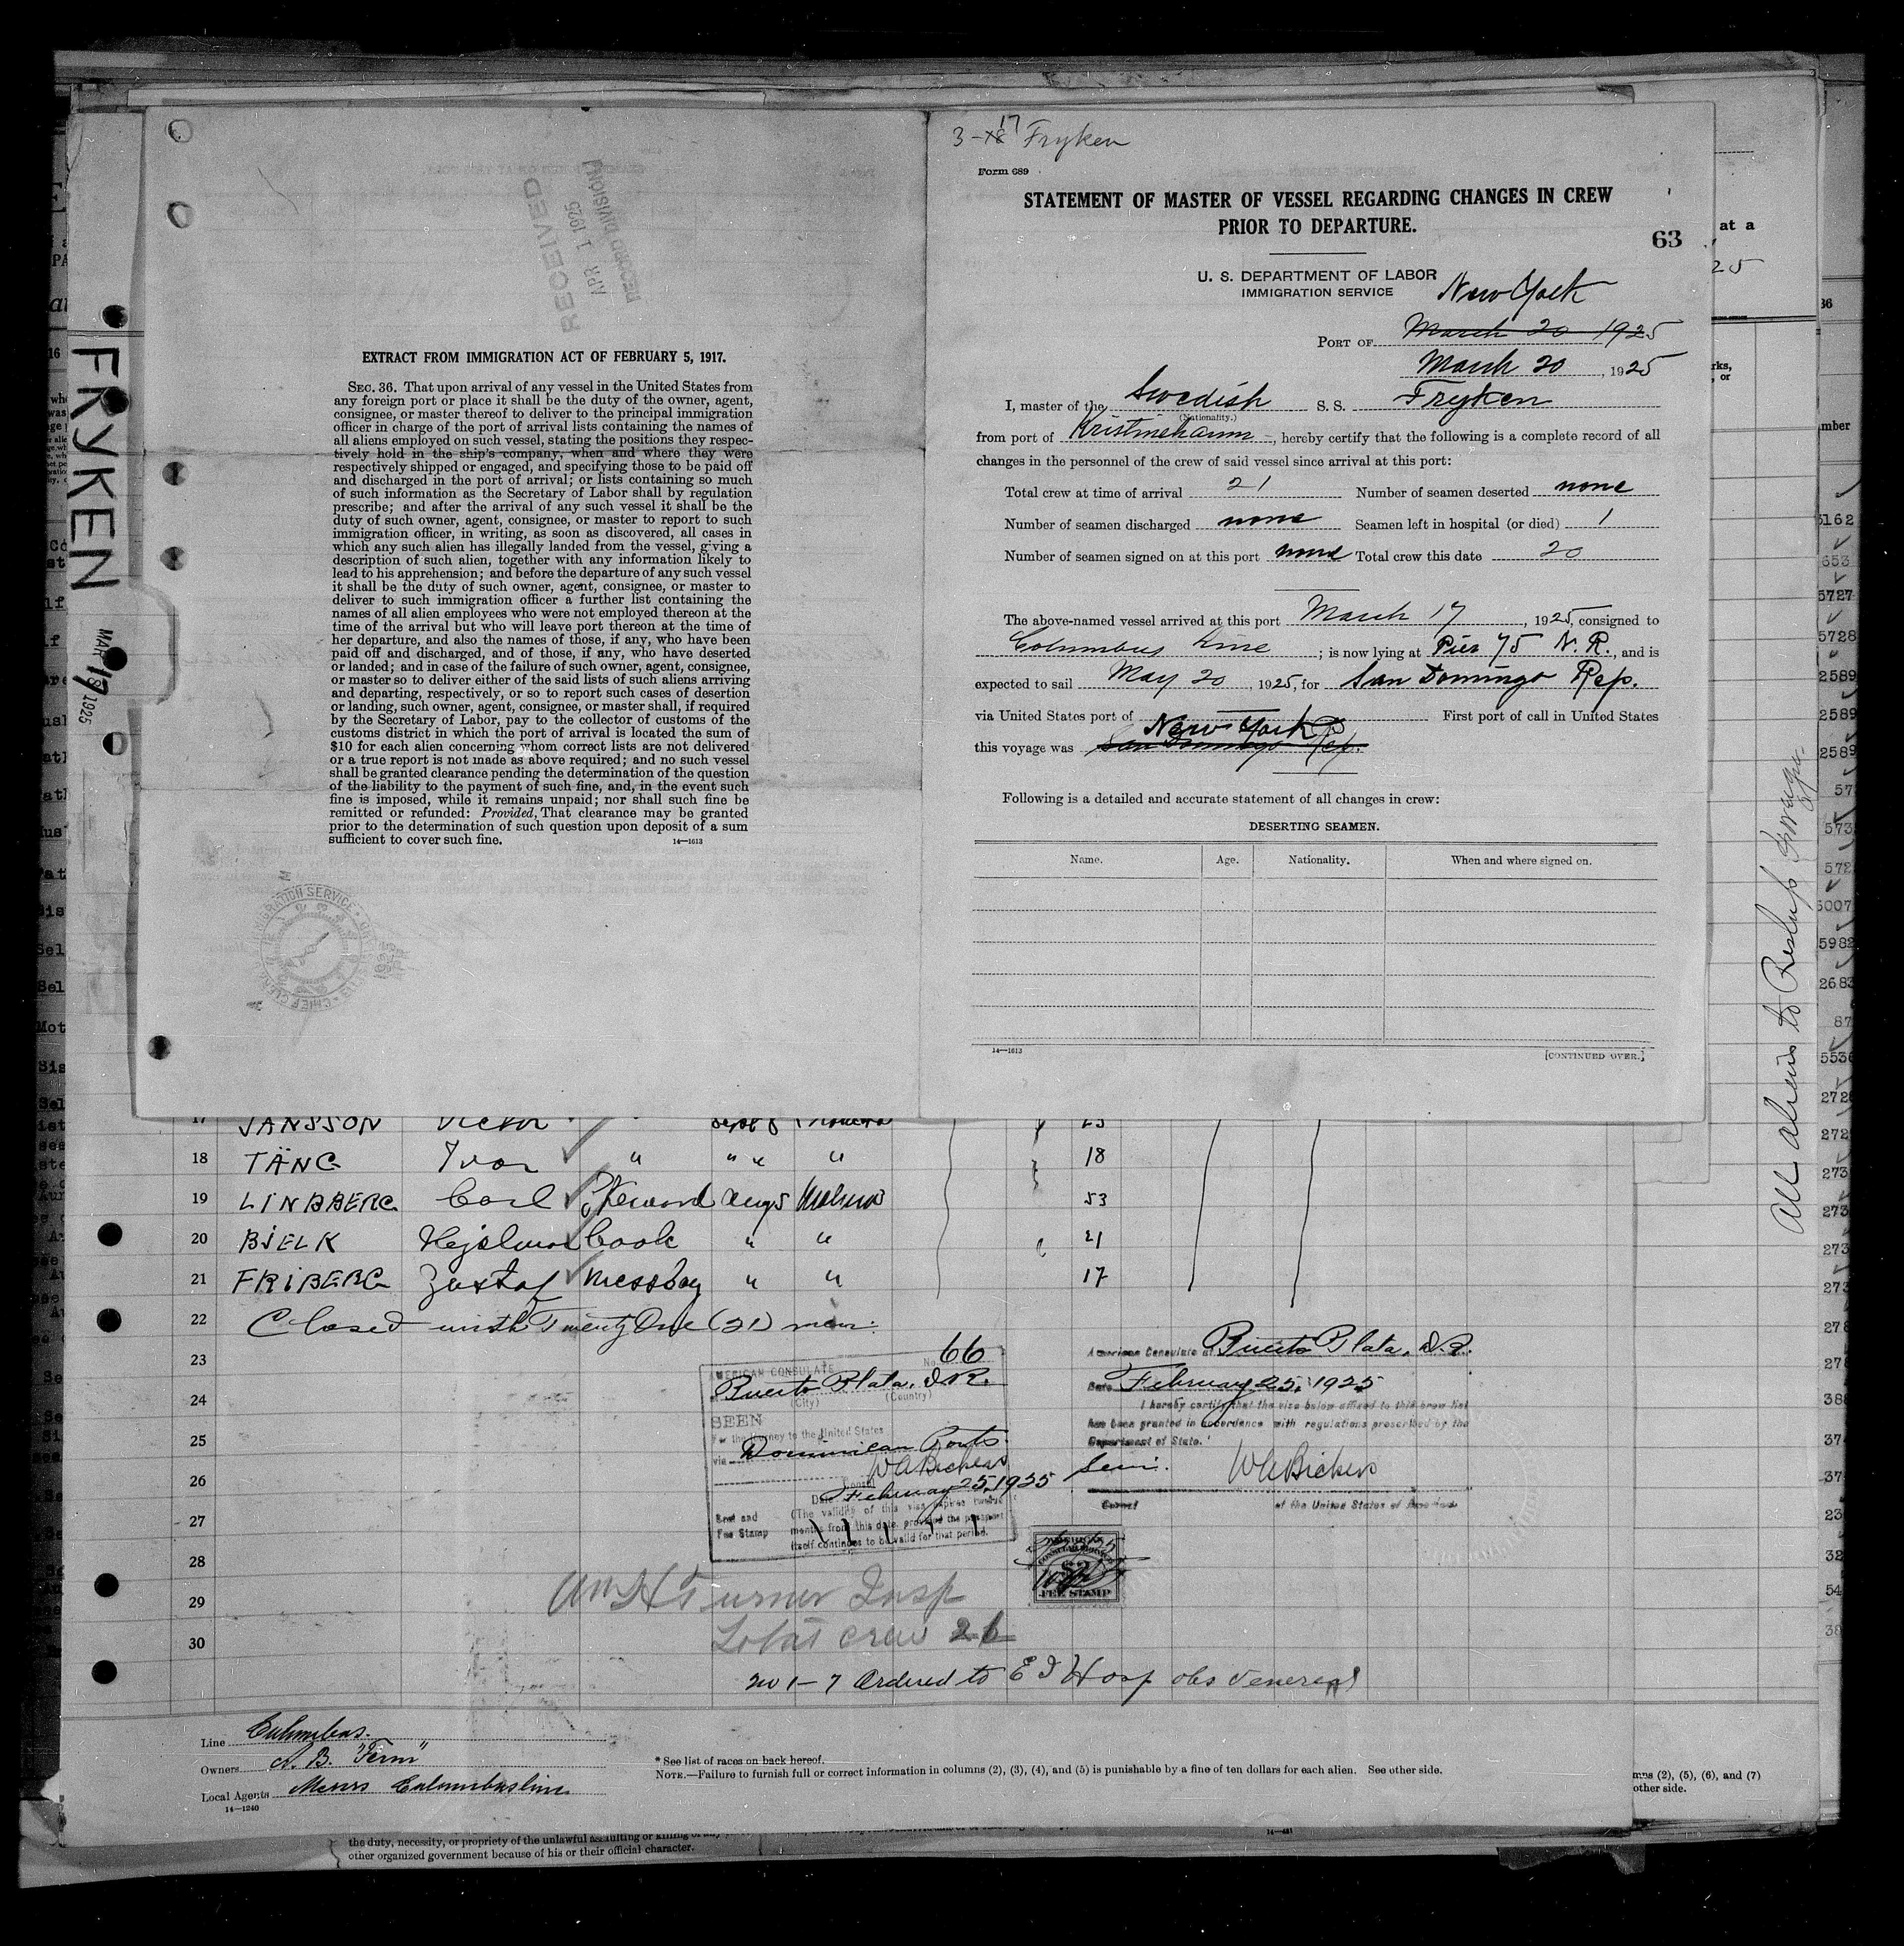 3-17 Fryken
Form 689
STATEMENT OF MASTER OF VESSEL REGARDING CHANGES IN CREW
PRIOR TO DEPARTURE.
63
U. S. DEPARTMENT OF LABOR
IMMIGRATION SERVICE
New York
PORT OF March 20 1925
March 20, 1925
I, master of the Swedish S. S. Fryken
(Nationality.)
from port of Kristinehamn, hereby certify that the following is a complete record of all
changes in the personnel of the crew of said vessel since arrival at this port:
Total crew at time of arrival 21 Number of seamen deserted none
Number of seamen discharged none Seamen left in hospital (or died) 1
Number of seamen signed on at this port none Total crew this date 20
The above-named vessel arrived at this port March 17, 1925, consigned to
Columbus Line; is now lying at Pier 75 N. R., and is
expected to sail May 20, 1925, for San Domingo Rep.
via United States port of First port of call in United States
this voyage was New York San Domingo Rep.
Following is a detailed and accurate statement of all changes in crew:
DESERTING SEAMEN.
Name. Age. Nationality. When and where signed on.
14—1613 [CONTINUED OVER.]
RECEIVED
APR 1 1925
RECORD DIVISION
EXTRACT FROM IMMIGRATION ACT OF FEBRUARY 5, 1917.
SEC. 36. That upon arrival of any vessel in the United States from
any foreign port or place it shall be the duty of the owner, agent,
consignee, or master thereof to deliver to the principal immigration
officer in charge of the port of arrival lists containing the names of
all aliens employed on such vessel, stating the positions they respec-
tively hold in the ship's company, when and where they were
respectively shipped or engaged, and specifying those to be paid off
and discharged in the port of arrival; or lists containing so much
of such information as the Secretary of Labor shall by regulation
prescribe; and after the arrival of any such vessel it shall be the
duty of such owner, agent, consignee, or master to report to such
immigration officer, in writing, as soon as discovered, all cases in
which any such alien has illegally landed from the vessel, giving a
description of such alien, together with any information likely to
lead to his apprehension; and before the departure of any such vessel
it shall be the duty of such owner, agent, consignee, or master to
deliver to such immigration officer a further list containing the
names of all alien employees who were not employed thereon at the
time of the arrival but who will leave port thereon at the time of
her departure, and also the names of those, if any, who have been
paid off and discharged, and of those, if any, who have deserted
or landed; and in case of the failure of such owner, agent, consignee,
or master so to deliver either of the said lists of such aliens arriving
and departing, respectively, or so to report such cases of desertion
or landing, such owner, agent, consignee, or master shall, if required
by the Secretary of Labor, pay to the collector of customs of the
customs district in which the port of arrival is located the sum of
$10 for each alien concerning whom correct lists are not delivered
or a true report is not made as above required; and no such vessel
shall be granted clearance pending the determination of the question
of the liability to the payment of such fine, and, in the event such
fine is imposed, while it remains unpaid; nor shall such fine be
remitted or refunded: Provided, That clearance may be granted
prior to the determination of such question upon deposit of a sum
sufficient to cover such fine.
14—1613
FRYKEN
MAR 17 1925
17 JANSSON Victor 23
18 TÄNG Ivar " " " " 18
19 LINDBERG Carl Steward Aug 5 Malmö 53
20 BJELK Hjalmar Cook " " 21
21 FRIBERG Gustaf Messboy " " 17
22 Closed with Twenty One (21) men.
23
24
25
26
27
28
29
30
AMERICAN CONSULATE No. 66
Puerto Plata, D.R.
(City) (Country)
SEEN
For the journey to the United States
via Dominican Ports.
W A Bickers
Consul
Date February 25, 1925
(The validity of this visa expires twelve
months from this date, provided the passport
itself continues to be valid for that period.
Seal and
Fee Stamp
American Consulate at Puerto Plata, D.R.
Date February 25, 1925
I hereby certify that the visa below affixed to this crew list
has been granted in accordance with regulations prescribed by the
Department of State.
W A Bickers
Consul of the United States of America
FEE STAMP
Wm H Turner Insp
Total crew 21
No 1-7 Ordered to E I Hosp obs venereal
All aliens to Reship
Line Columbus.
Owners A. B. "Fern"
Local Agents Messrs Columbusline
14—1240
* See list of races on back hereof.
NOTE.—Failure to furnish full or correct information in columns (2), (3), (4), and (5) is punishable by a fine of ten dollars for each alien. See other side.
(2), (5), (6), and (7)
other side.
the duty, necessity, or propriety of the unlawful assaulting or killing of any
other organized government because of his or their official character.